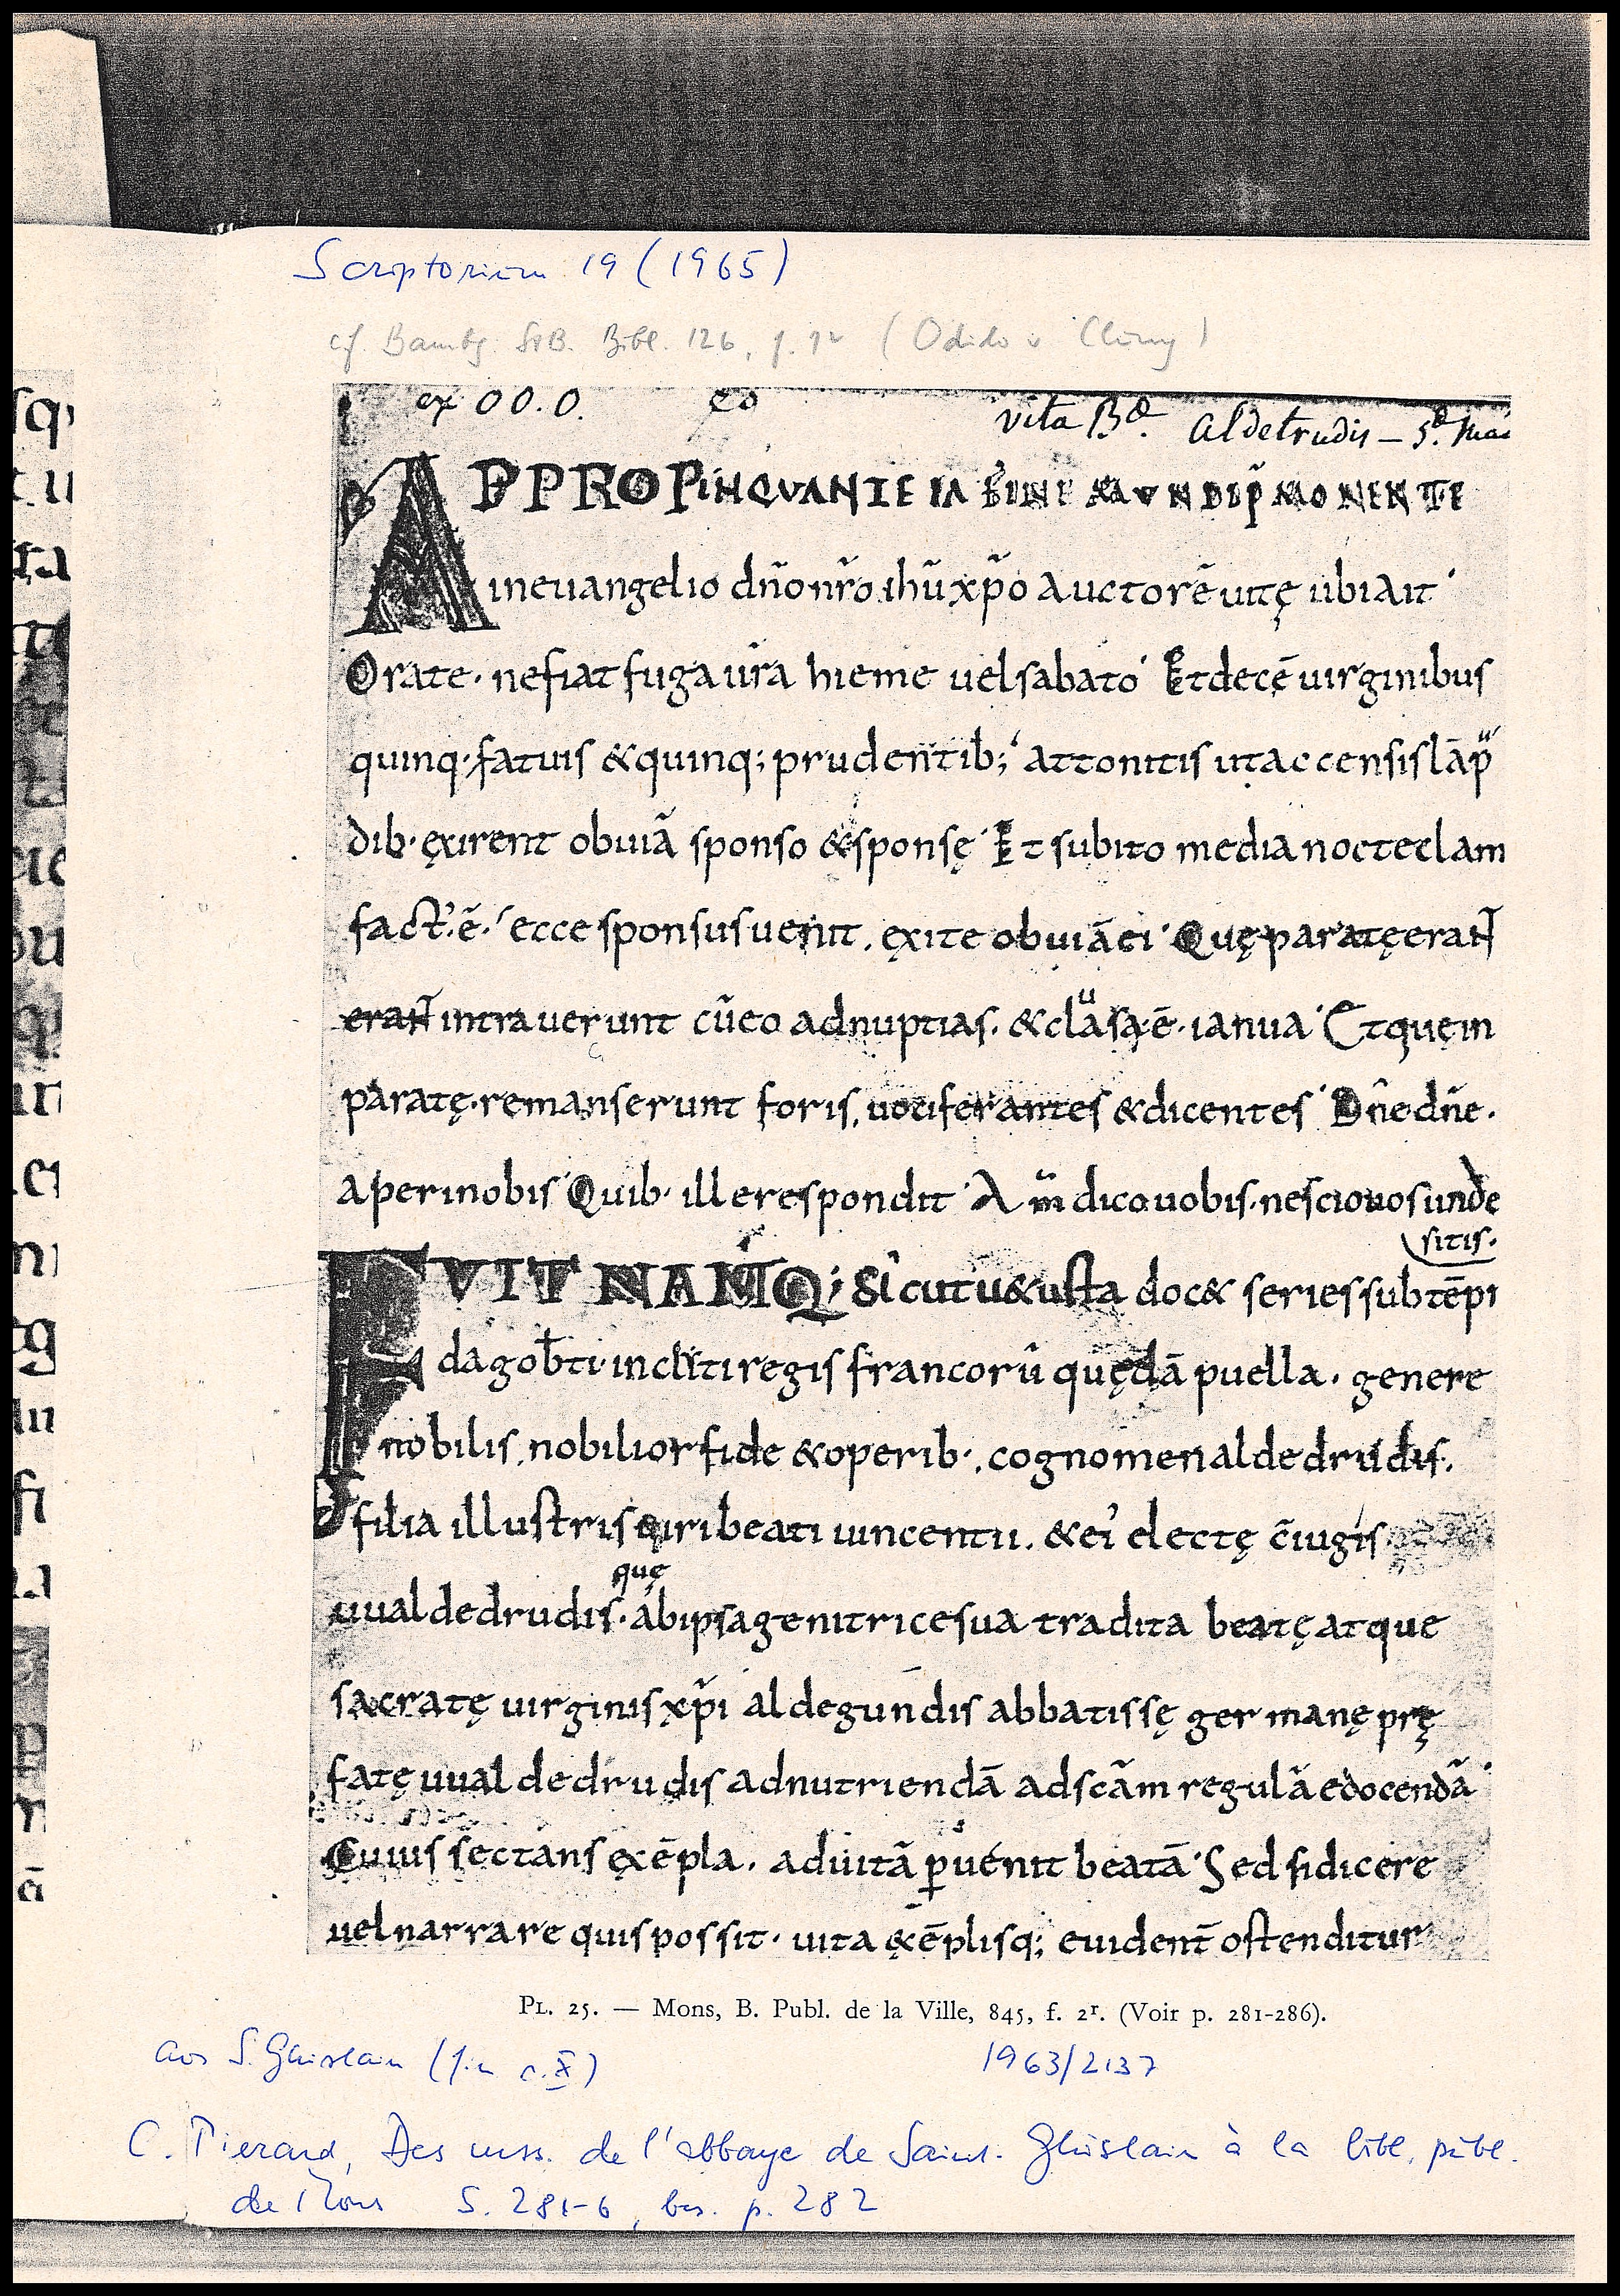 Scriptorium 19 (1965)
cf. Bambg. StB. Bibl. 126, f. 1r (Odilo v. Cluny)
ex OO.O.
vita Bę. Aldetrudis – 5ę. Mai
APPROPINQVANTE IÃ FINE MVNDI P̃MONENTE
in euangelio dño nr̃o ihũ xp̃o auctorē uitę ubi ait
Orate· ne fiat fuga ur̃a hieme uel sabato Et decē uirginibus
quinq· fatuis & quinq; prudentib; attonitis ut accensis lāp
dib· ęxirent obuiā sponso & sponsę Et subito media nocte clam
fact᾽·ē· ecce sponsus uenit. ęxite obuiā ei Quę paratę erañt
erañt intrauerunt cũ eo ad nuptias· & clausa·ē· ianua Et quę in
paratę· remanserunt foris, uociferantes & dicentes Dñe dñe·
aperi nobis Quib· ille respondit Am̃ dico uobis· nescio uos unde
sitis·
FVIT NAMQ; Sicut uetusta doc& series sub tēpi
dagob̄ti incliti regis francorũ quędā puella· genere
nobilis, nobilior fide & operib·, cognomen aldedrudis·
filia illustris uiri beati uincentii. & ei᾽ electę c̃iugis·
quę
uualdedrudis· ab ipsa genitrice sua tradita beatę atque
sacratę uirginis xp̃i aldegundis abbatissę germanę prę
fatę uualdedrudis ad nutriendā ad scãm regulā edocendā
Cuius sectans ęxēpla. ad uitā ꝑuenit beatā Sed si dicere
uel narrare quis possit· uita &ēplisq; euident̄ ostenditur
PL. 25. — Mons, B. Publ. de la Ville, 845, f. 2r. (Voir p. 281-286).
aus S. Ghislain (fin s. X)
1963/2137
C. Pierard, Des mss. de l'abbaye de Saint-Ghislain à la bibl. publ.
de Mons S. 281-6, bes. p. 282